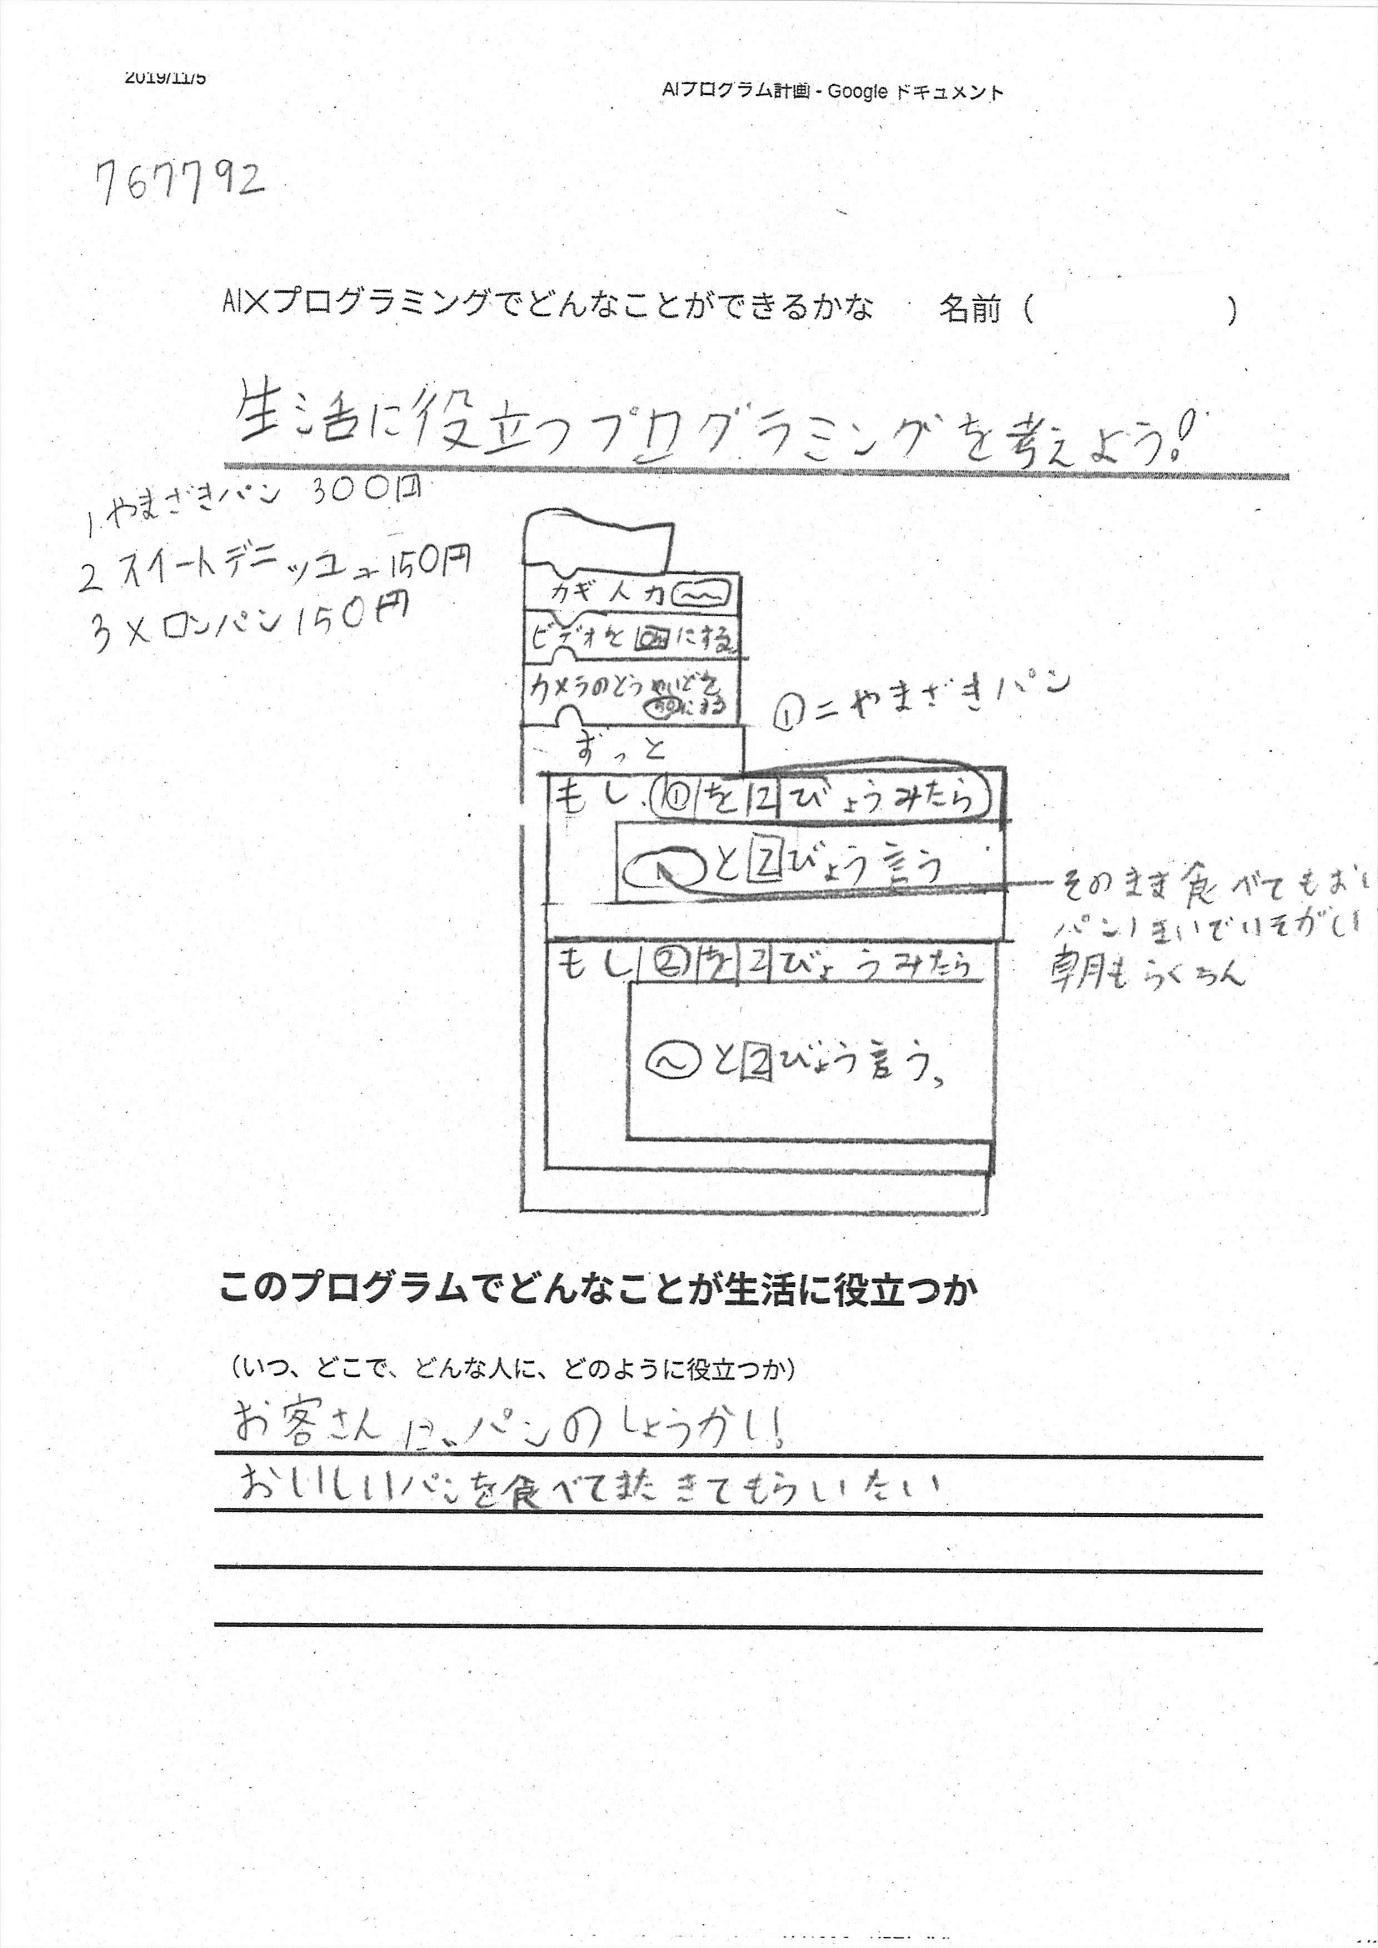 2019/11/5
AIプログラム計画 - Google ドキュメント
767792
AI×プログラミングでどんなことができるかな 名前（ ）
生活に役立つプログラミングを考えよう!
1.やまざきパン 300円
2 スイートデニッシュ 150円
3 メロンパン 150円
カギ入力
ビデオを ON にする
カメラのとうめいどを
にする
①=やまざきパン
ずっと
もし ① を 2 びょうみたら
と 2 びょう言う
そのまま食べてもおい
パン1まいでいそがしい
朝もらくちん
もし ② を 2 びょうみたら
〜 と 2 びょう言う。
このプログラムでどんなことが生活に役立つか
（いつ、どこで、どんな人に、どのように役立つか）
お客さんに、パンのしょうかい!
おいしいパンを食べてまたきてもらいたい